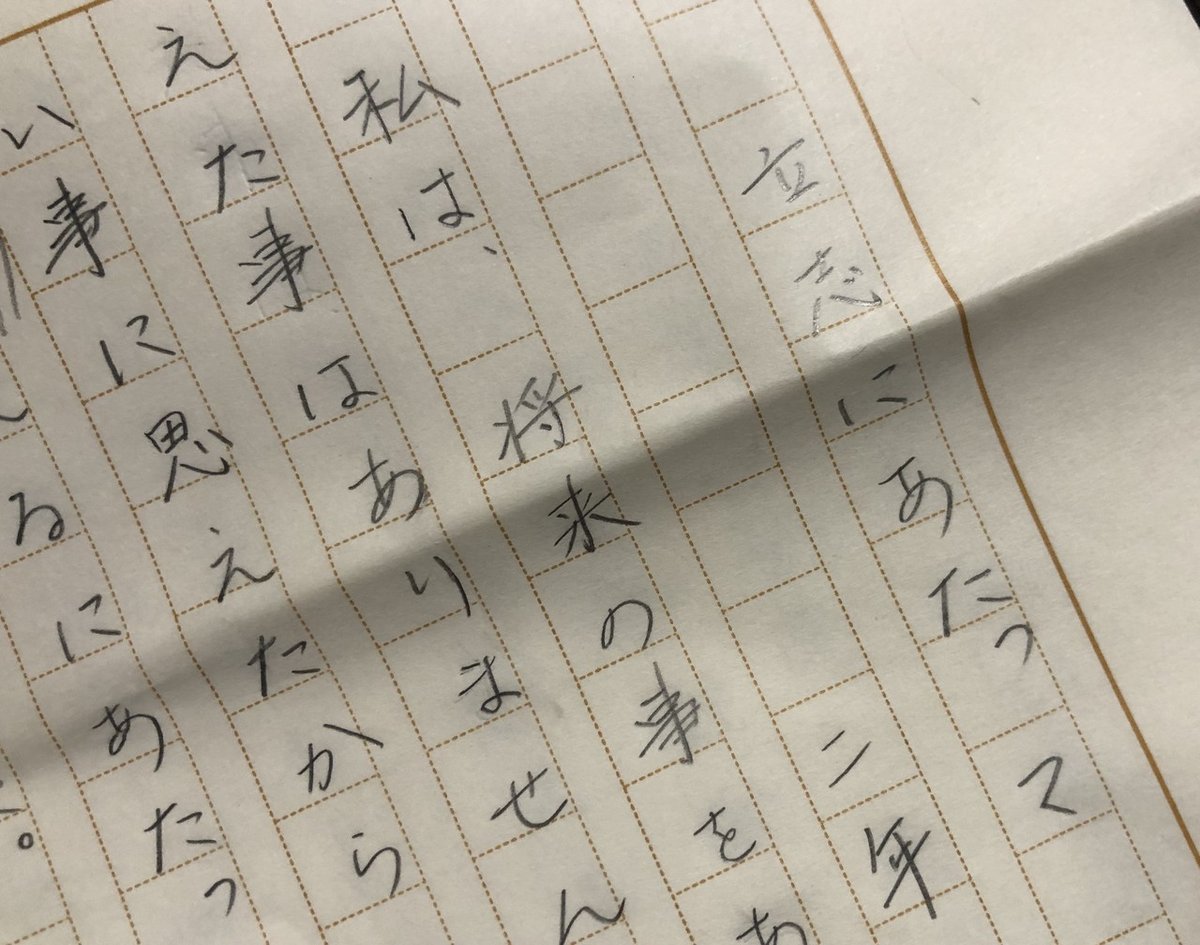 立志にあたって
二年
私は、将来の事をあ
えた事はありません
い事に思えたから
るにあたっ
。